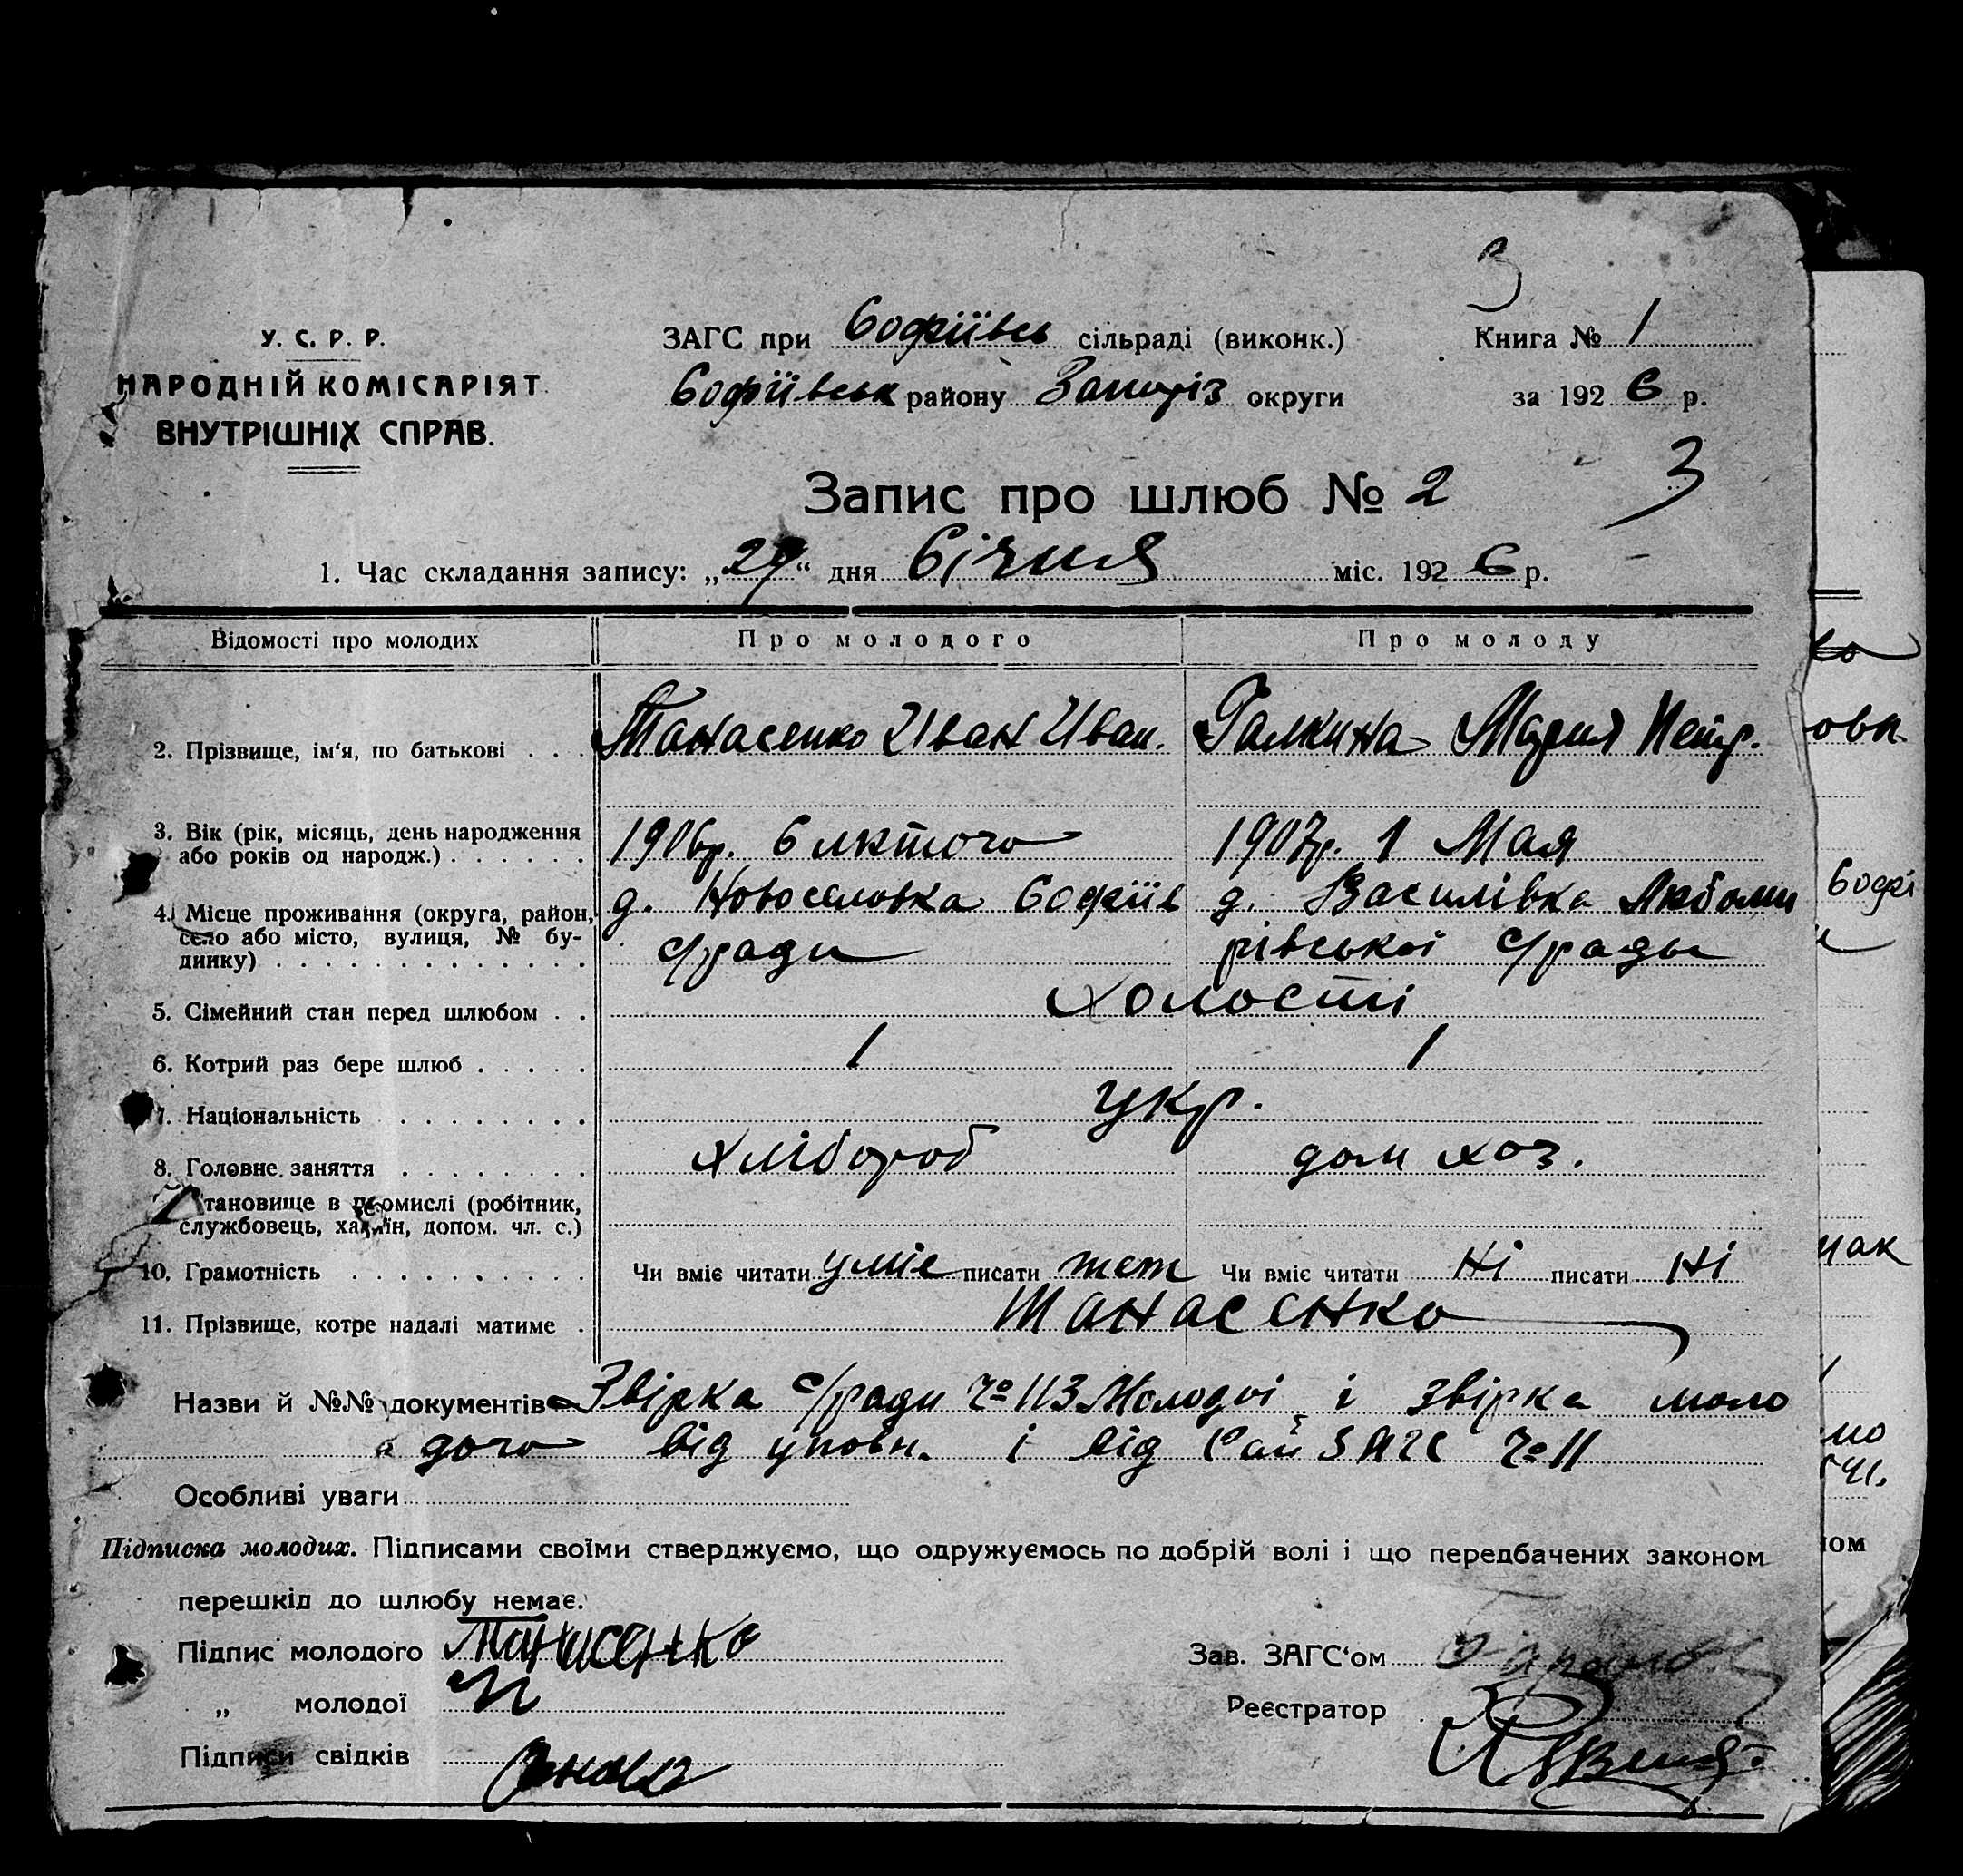 3
У. С. Р. Р.
НАРОДНІЙ КОМІСАРІЯТ
ВНУТРІШНІХ СПРАВ.
ЗАГС при Софіївсь сільраді (виконк.)
Книга № 1
Софіївськ району Запоріз округи
за 1926 р.
3
Запис про шлюб № 2
1. Час складання запису: „29“ дня Січня міс. 1926 р.
Відомості про молодих Про молодого Про молоду
2. Прізвище, ім'я, по батькові . . . Танасенко Иван Иван. Галкина Мария Петр.
3. Вік (рік, місяць, день народження
або років од народж.) . . . . . . 1906р. 6 лютого 1907р. 1 Мая
4. Місце проживання (округа, район, д. Новоселовка Софіїв д. Василівка Любоми
село або місто, вулиця, № бу- с/ради рівської с/рады
динку) . . . . . . . . . . . . .
5. Сімейний стан перед шлюбом . . холості
6. Котрий раз бере шлюб . . . . . 1 1
7. Національність . . . . . . . . укр.
8. Головне заняття . . . . . . . . хлібороб дом хоз.
тановище в промислі (робітник,
службовець, хазяїн, допом. чл. с.)
10. Грамотність . . . . . . . . . . Чи вміє читати уміє писати теж Чи вміє читати ні писати ні
11. Прізвище, котре надалі матиме . Танасенко
Назви й №№ документів Звірка с/ради № 113 Молодої і звірка моло
дого від уповн. і від Рай ЗАГС № 11
Особливі уваги
Підписка молодих. Підписами своїми стверджуємо, що одружуємось по добрій волі і що передбачених законом
перешкід до шлюбу немає.
Підпис молодого Танасенко
Зав. ЗАГС'ом
„ молодої
Реєстратор
Підписи свідків